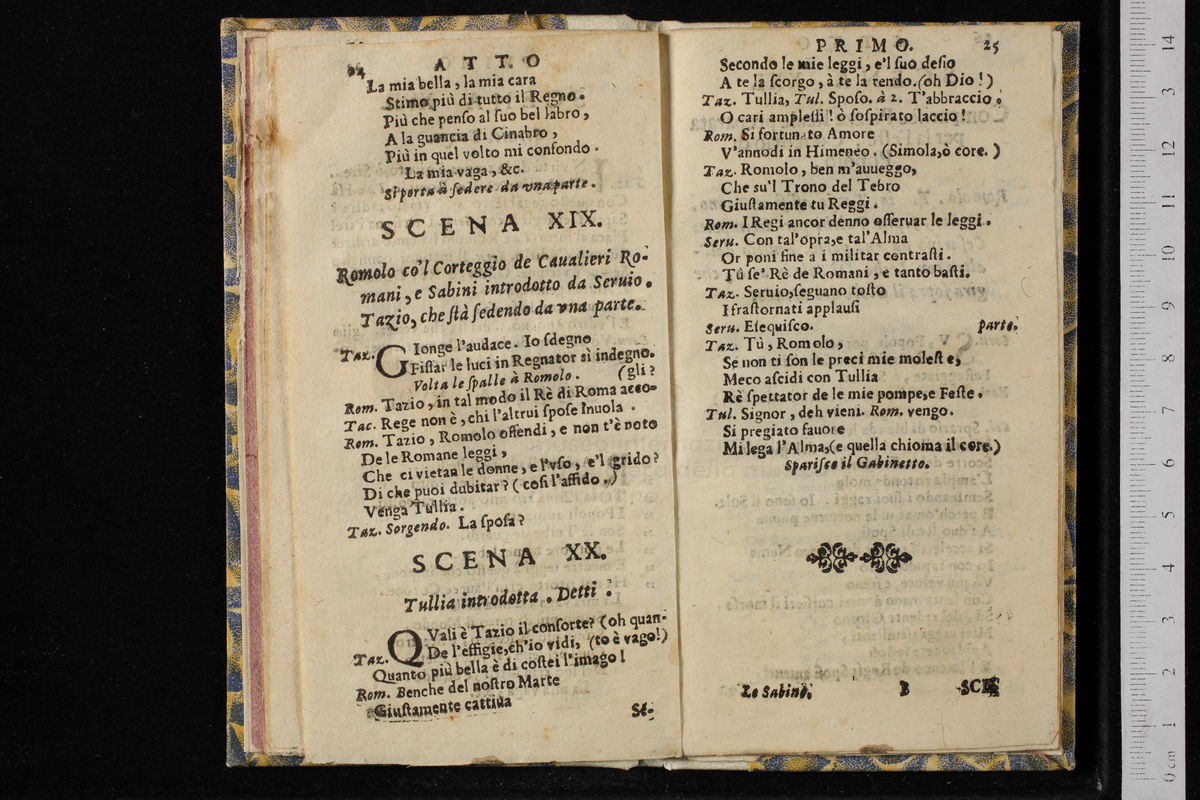 24 ATTO
La mia bella, la mia cara
Stimo più di tutto il Regno.
Più che penso al suo bel labro,
A la guancia di Cinabro,
Più in quel volto mi confondo.
La mia vaga, &c.
Si porta à sedere da vna parte.
SCENA XIX.
Romolo co'l Corteggio de Caualieri Ro-
mani, e Sabini introdotto da Seruio.
Tazio, che stà sedendo da vna parte.
Taz. GIonge l'audace. Io sdegno
Fissar le luci in Regnator sì indegno.
Volta le spalle à Romolo. (gli?
Rom. Tazio, in tal modo il Rè di Roma acco-
Tac. Rege non è, chi l'altrui spose inuola.
Rom. Tazio, Romolo offendi, e non t'è noto
De le Romane leggi,
Che ci vietan le donne, e l'vso, e'l grido?
Di che puoi dubitar? (così l'affido.)
Venga Tullia.
Taz. Sorgendo. La sposa?
SCENA XX.
Tullia introdotta. Detti.
Taz. QVali è Tazio il consorte? (oh quan-
De l'effigie, ch'io vidi, (to è vago!)
Quanto più bella è di costei l'imago!
Rom. Benche del nostro Marte
Giustamente cattiua
Se-
PRIMO. 25
Secondo le mie leggi, e'l suo desio
A te la scorgo, à te la rendo. (oh Dio!)
Taz. Tullia, Tul. Sposo. à 2. T'abbraccio.
O cari amplessi! ò sospirato laccio!
Rom. Si fortunato Amore
V'annodi in Himeneo. (Simola, ò core.)
Taz. Romolo, ben m'auueggo,
Che su'l Trono del Tebro
Giustamente tu Reggi.
Rom. I Regi ancor denno osseruar le leggi.
Seru. Con tal'opra, e tal'Alma
Or poni fine a i militar contrasti.
Tù se' Rè de Romani, e tanto basti.
Taz. Seruio, seguano tosto
I frastornati applausi
Seru. Esequisco. parte.
Taz. Tù, Romolo,
Se non ti son le preci mie moleste,
Meco ascidi con Tullia
Rè spettator de le mie pompe, e Feste.
Tul. Signor, deh vieni. Rom. vengo.
Si pregiato fauore
Mi lega l'Alma, (e quella chioma il core.)
Sparisce il Gabinetto.
Le Sabine. B SCE